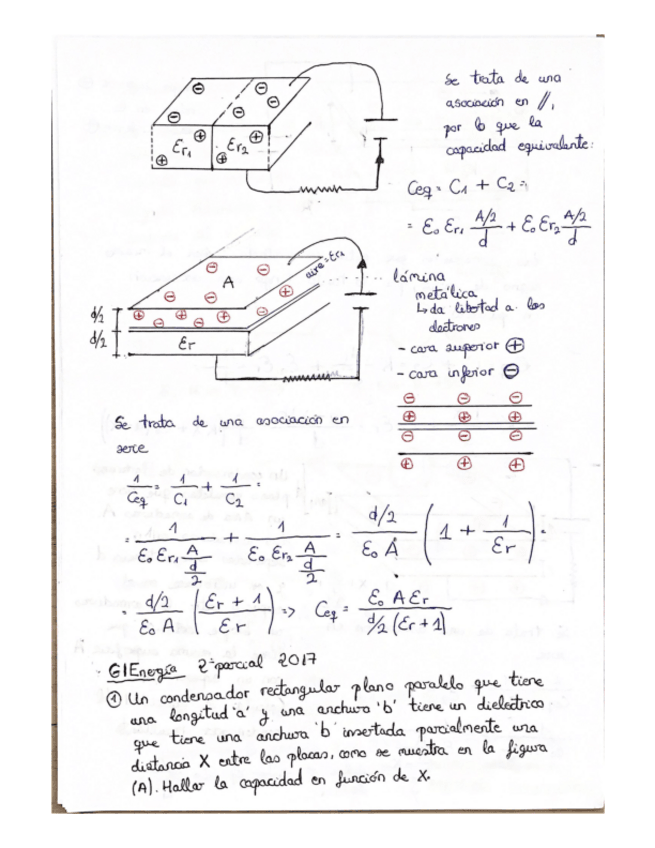 Se trata de una
asociación en //,
por lo que la
capacidad equivalente:
Ceq = C1 + C2 =
= ε0 εr1 (A/2)/d + ε0 εr2 (A/2)/d
εr1
εr2
A
aire = εr1
d/2
d/2
εr
lámina
metálica
↳ da libertad a los
electrones
- cara superior ⊕
- cara inferior ⊖
Se trata de una asociación en
serie
1/Ceq = 1/C1 + 1/C2 =
= 1/(ε0 εr1 A/(d/2)) + 1/(ε0 εr2 A/(d/2)) = (d/2)/(ε0 A) (1 + 1/εr) =
= (d/2)/(ε0 A) ((εr + 1)/εr) => Ceq = (ε0 A εr)/(d/2 (εr + 1))
GIEnergía 2º parcial 2017
① Un condensador rectangular plano paralelo que tiene
una longitud 'a' y una anchura 'b' tiene un dieléctrico
que tiene una anchura 'b' insertada parcialmente una
distancia X entre las placas, como se muestra en la figura
(A). Hallar la capacidad en función de X.